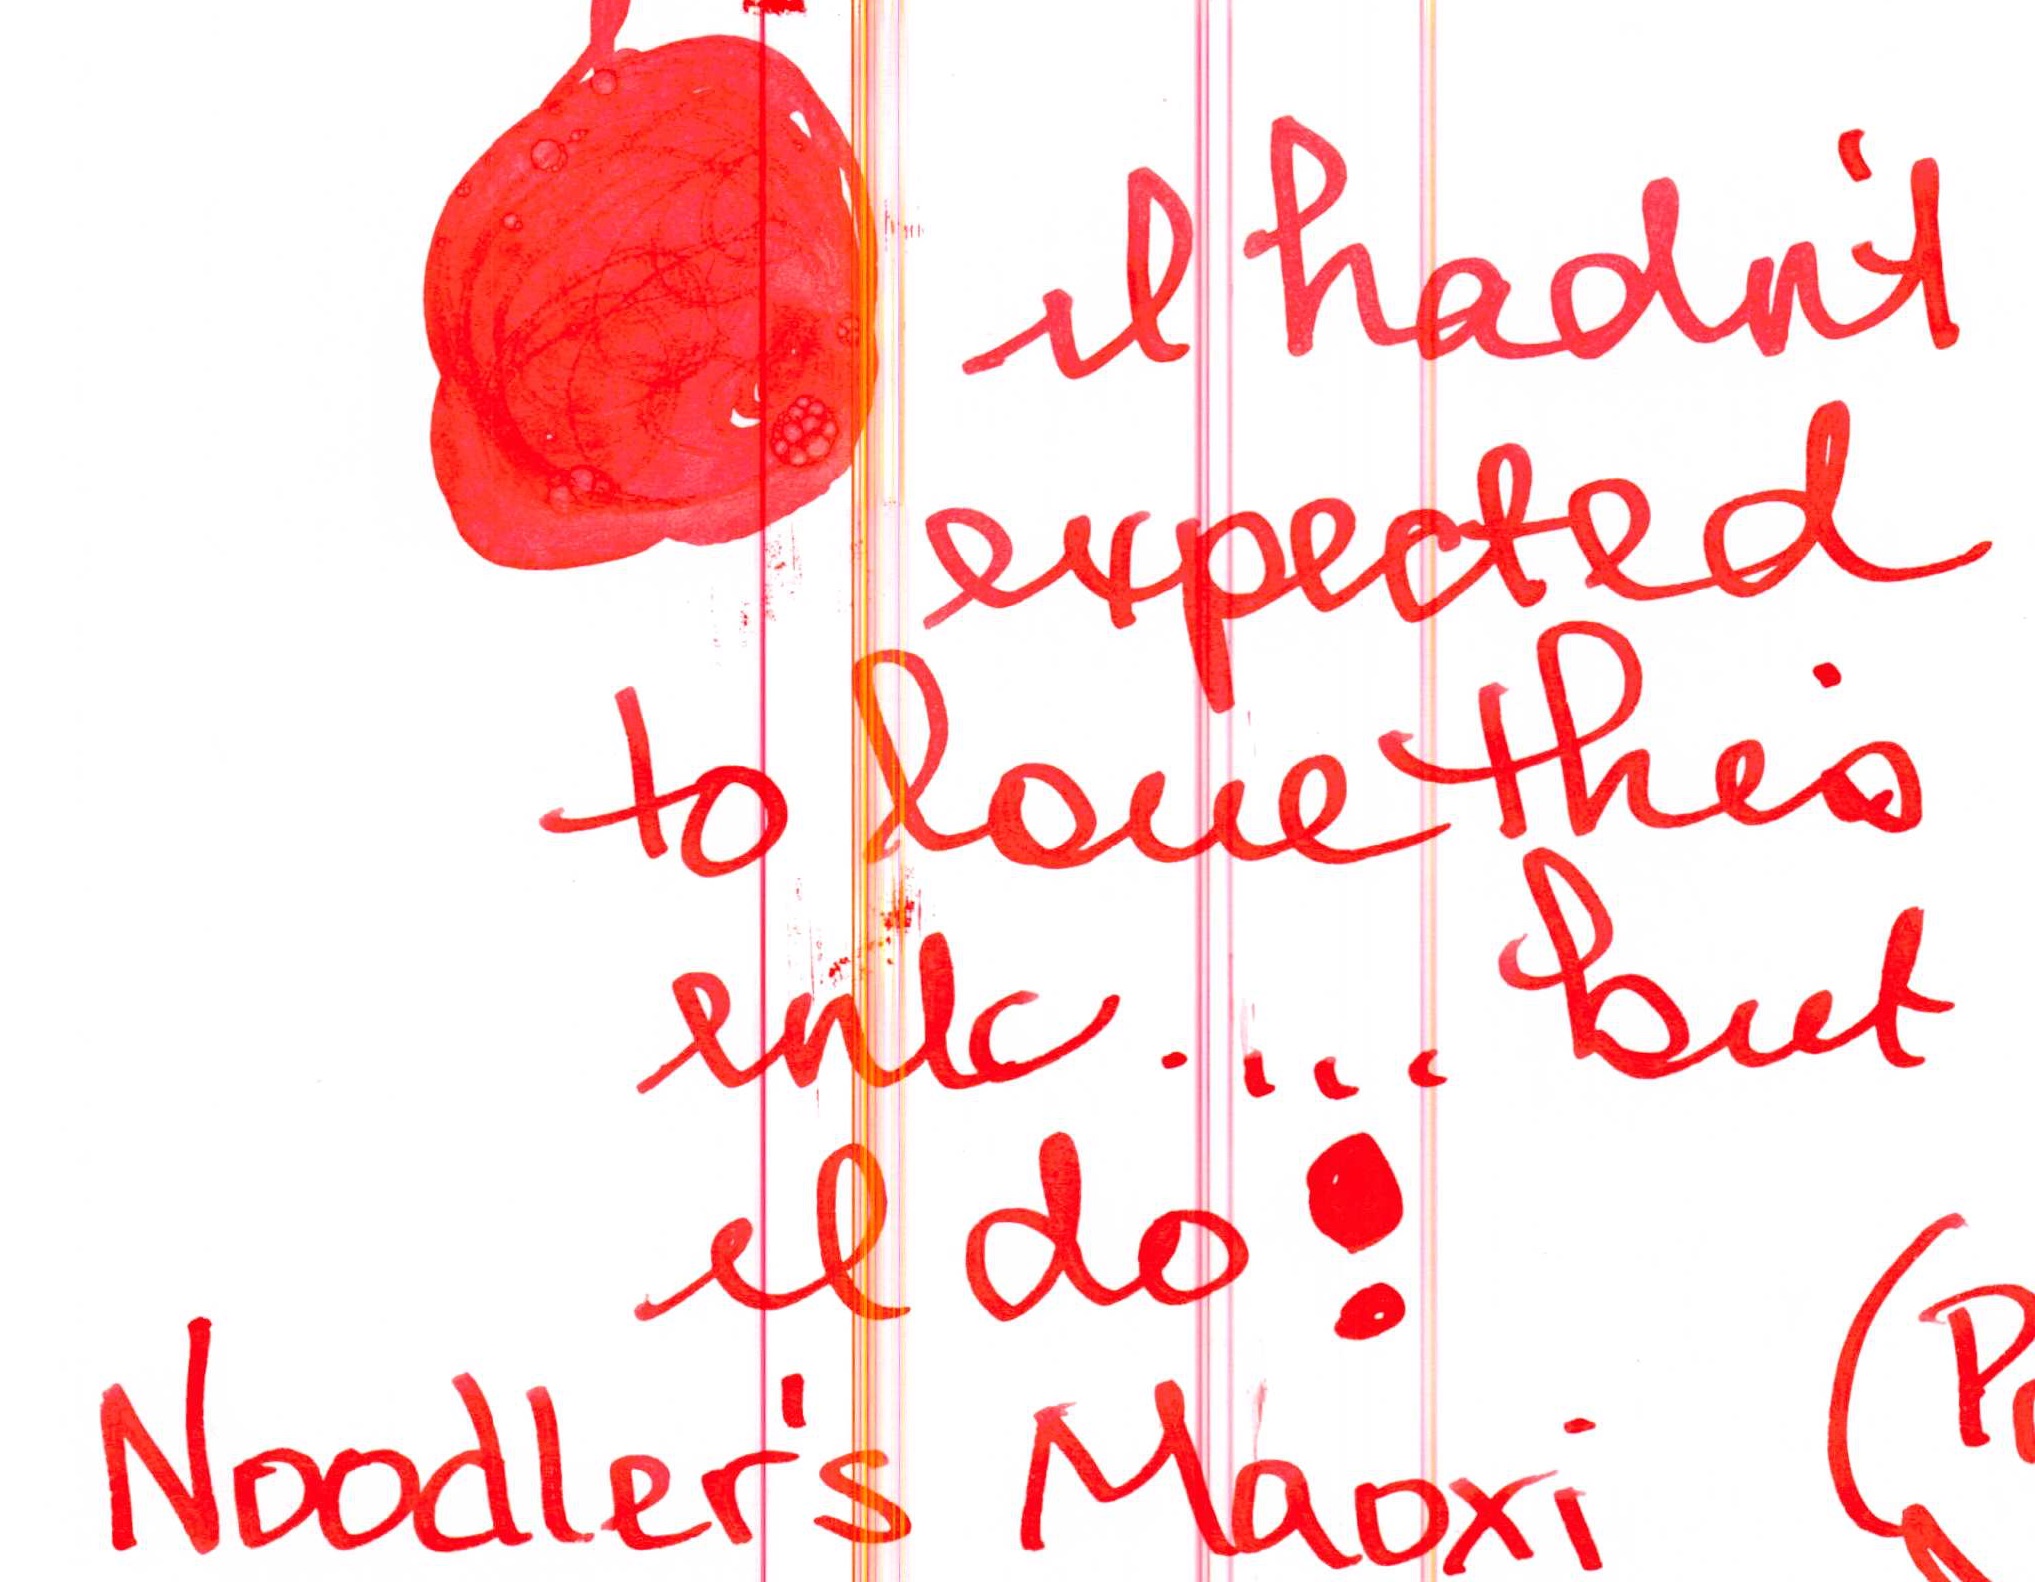 I hadn't
expected
to love this
ink.... but
I do!
Noodler's Maoxi (P